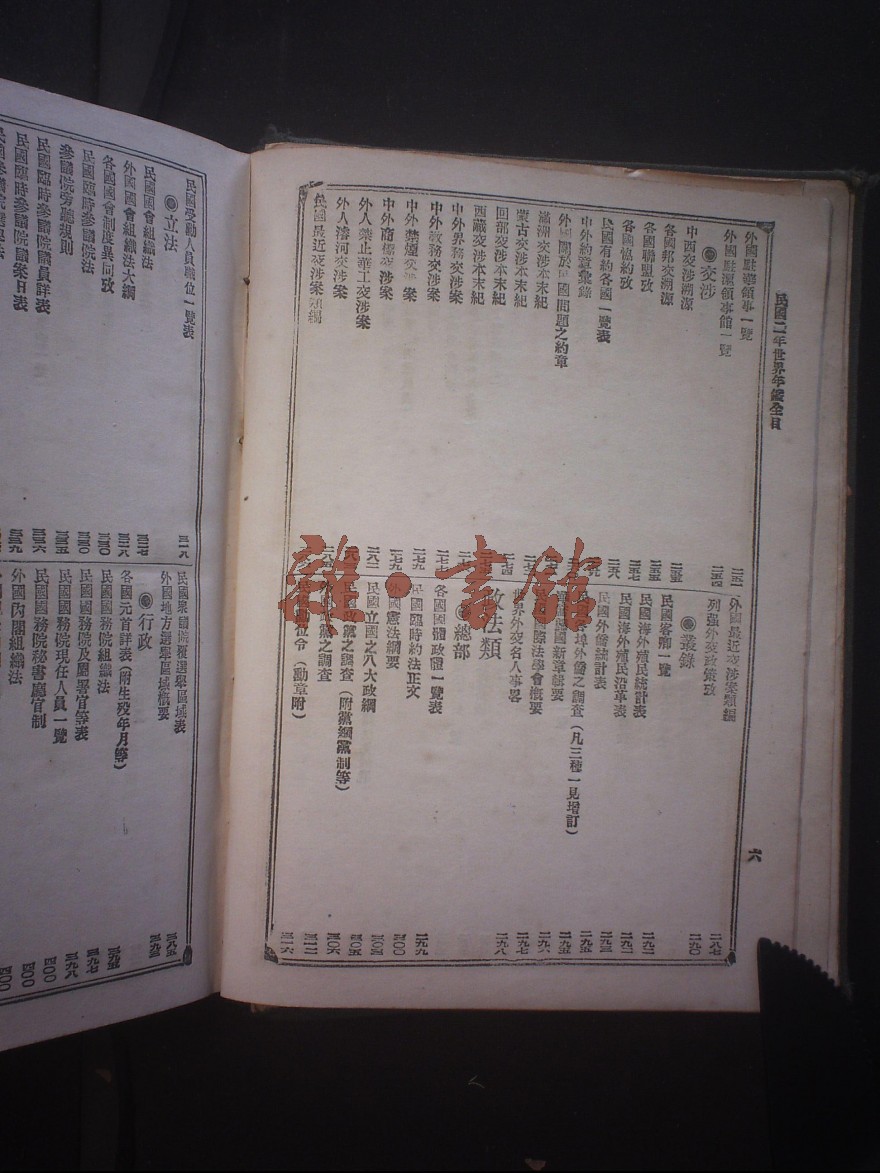 民國二年世界年鑑全目
六
外國駐華領事一覽
外國駐滬領事館一覽
交涉
中西交涉溯源
各國邦交溯源
各國聯盟攷
各國協約攷
民國有約各國一覽表
中外約章彙錄
外國關於民國問題之約章
滿洲交涉本末紀
蒙古交涉本末紀
回部交涉本末紀
西藏交涉本末紀
中外界務交涉案
中外敎務交涉案
中外禁煙交涉案
中外商標交涉案
外人禁止華工交涉案
外人濬河交涉案
民國最近交涉案類編
外國最近交涉案類編
列强外交政策攷
叢錄
民國客卿一覽
民國海外殖民統計表
民國海外殖民沿革表
民國外僑統計表
埠外僑之調查（凡三種一見增訂）
國新章輯要
國際法學會槪要
世界外交名人事畧
政法類
總部
各國國體政體一覽表
民國臨時約法正文
外國憲法綱要
民國立國之八大政綱
民國政黨之調查（附黨綱黨制等）
外國政黨之調查
位令（勳章附）
二八七
二九〇
二九一
二九二
二九三
二九五
二九五
二九六
二九七
二九八
二九九
三〇〇
三〇四
三〇六
三一二
三一六
民國受勳人員職位一覽表
立法
民國國會組織法
外國國會組織法大綱
各國國會制度異同攷
民國臨時參議院法
參議院旁聽規則
民國臨時參議院議員詳表
民國臨時參議院議案日表
三一九
民國衆議院覆選舉區域表
外國地方選舉區域槪要
行政
各國元首詳表（附生殁年月等）
民國國務院組織法
民國國務院及閣署官等表
民國國務院現任人員一覽
民國國務院秘書廳官制
外國內閣組織法
三八五
三九三
三九五
三九七
三九八
四〇〇
四〇〇
四〇〇